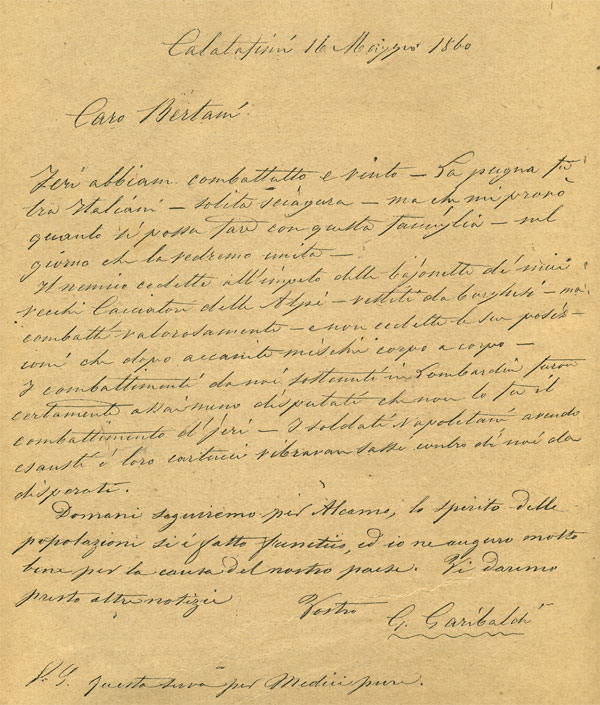 Calatafimi 16 Maggio 1860
Caro Bertani
Jeri abbiam combattutto e vinto — La pugna fu
tra Italiani — solita sciagura — ma che mi provò
quanto si possa fare con questa famiglia — nel
giorno che la vedremo unita —
Il nemico cedette all'impeto delle bajonette de' miei
vecchi Cacciatori delle Alpi — vestiti da borghesi — ma
combatté valorosamente — e non cedette le sue posiz-
ioni che dopo accanite mischie corpo a corpo —
I combattimenti da noi sostenuti in Lombardia furon
certamente assai meno disputati che non lo fu il
combattimento d'jeri — I soldati Napoletani avendo
esausti i loro cartucci vibravan sassi contro di noi da
disperati.
Domani seguiremo per Alcamo, lo spirito delle
popolazioni si è fatto frenetico, ed io ne auguro molto
bene per la causa del nostro paese. Vi daremo
presto altre notizie Vostro
G. Garibaldi
Questa serva per Medici pure.